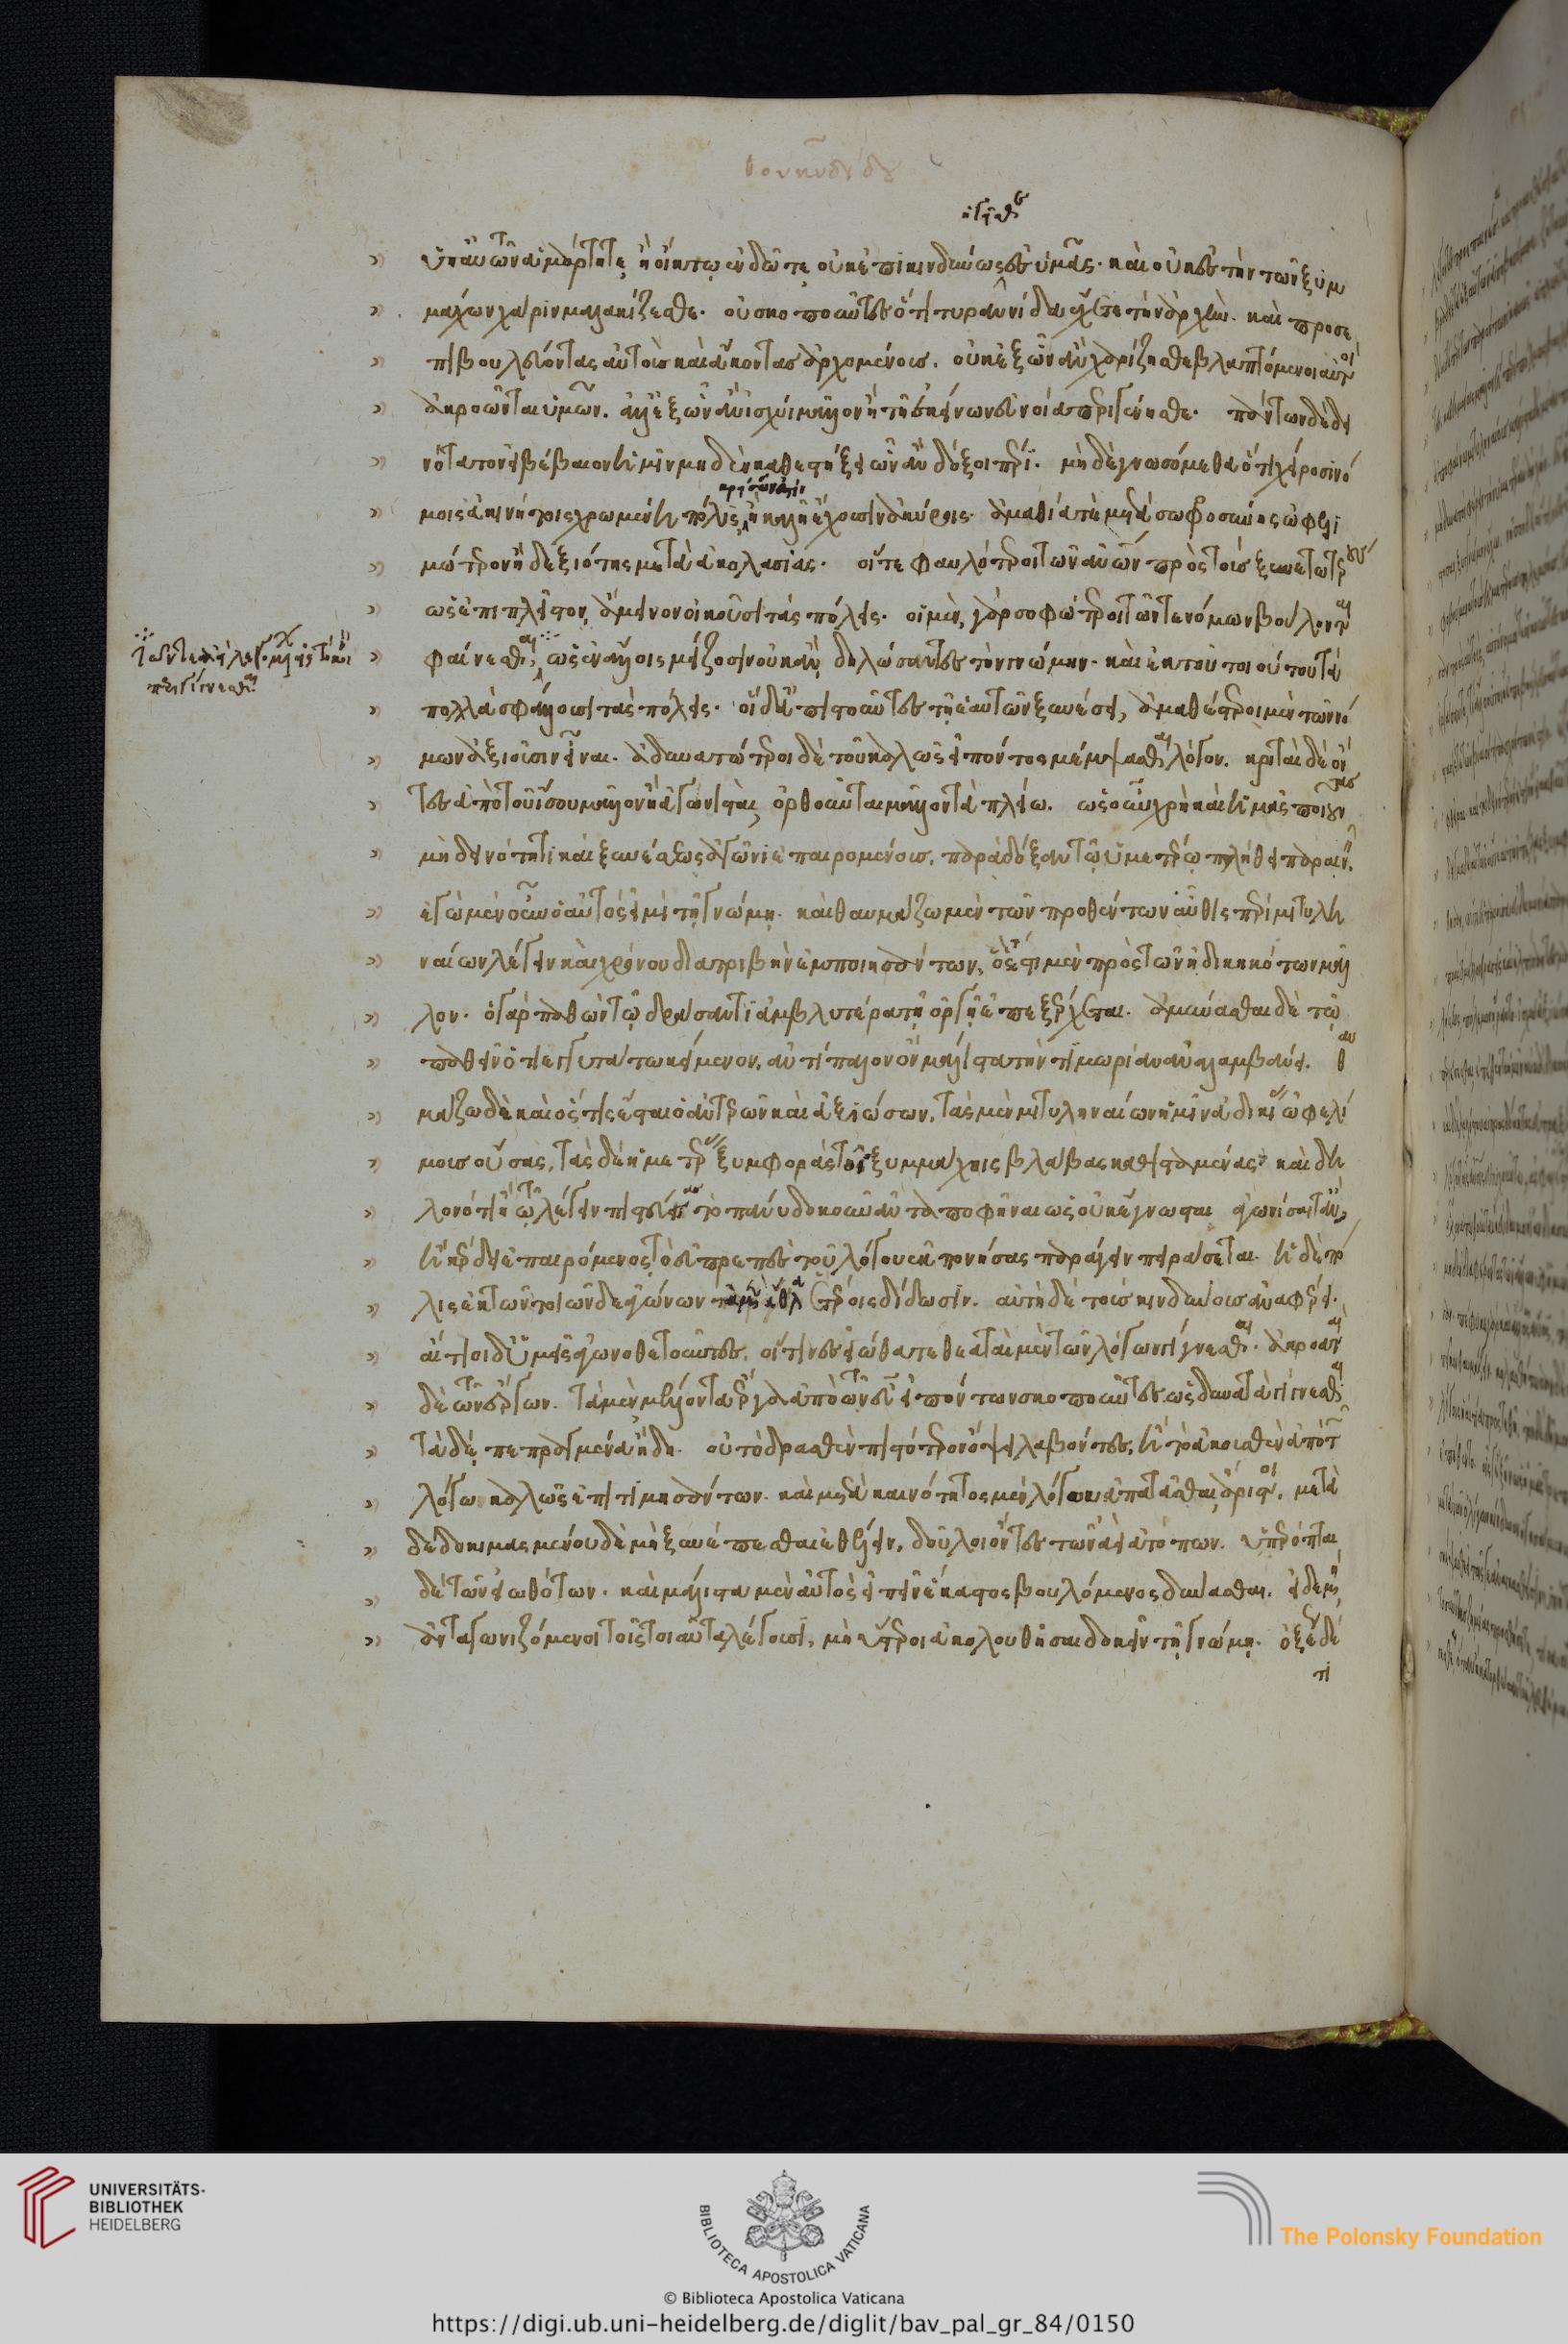 θουκυδίδου
ἡγεῖσθε
ὑπ' αὐτῶν ἁμάρτητε ἢ οἴκτῳ ἐνδῶτε οὐκ ἐπικινδύνως ἐς ὑμᾶς. καὶ οὐκ ἐς τὴν τῶν ξυμ
μάχων χάριν μαλακίζεσθε. οὐ σκοποῦντες ὅτι τυραννίδα ἔχετε τὴν ἀρχὴν. καὶ πρὸς ἐ
πιβουλεύοντας αὐτοὺς καὶ ἄκοντας ἀρχομένους. οὐκ ἐξ ὧν ἂν χαρίζησθε βλαπτόμενοι αὐτοὶ
ἀκροῶνται ὑμῶν. ἀλλ' ἐξ ὧν ἂν ἰσχύι μᾶλλον ἢ τῇ ἐκείνων εὐνοία περιγένησθε. πάντων δὲ δει
νότατον εἰ βέβαιον ἡμῖν μηδὲν καθεστήξει ὧν ἂν δόξοι πέρι. μὴ δὲ γνωσόμεθα ὅτι χείροσι νό
κρείσσων ἐστὶν
μοις ἀκινήτοις χρωμένη πόλις ἢ καλῶς ἔχουσιν ἀκύροις. ἀμαθία τὲ μετὰ σωφροσύνης ὠφελι
μώτερον ἢ δεξιότης μετὰ ἀκολασίας. οἵ τε φαυλότεροι τῶν ἀνθρώπων πρὸς τοὺς ξυνετωτέρους
ὡς ἐπιπλεῖστον ἄμεινον οἰκοῦσι τὰς πόλεις. οἱ μὲν γὰρ σοφώτεροι τῶν τε νόμων βούλονται
τῶν τε ἀεὶ λεγομένων ἐς τὸ κοινὸν
περιγίγνεσθαι
φαίνεσθαι, ὡς ἐν ἄλλοις μείζοσιν οὐκ ἂν δηλώσαντες τὴν γνώμην. καὶ ἐκ τοῦ τοιούτου τὰ
πολλὰ σφάλλουσι τὰς πόλεις. οἱ δ' ἀπιστοῦντες τῇ ἑαυτῶν ξυνέσει, ἀμαθέστεροι μὲν τῶν νό
μων ἀξιοῦσιν εἶναι. ἀδυνατώτεροι δὲ τοῦ καλῶς εἰπόντος μέμψασθαι λόγον. κριταὶ δὲ ὄν
τες ἀπὸ τοῦ ἴσου μᾶλλον ἢ ἀγωνισταὶ ὀρθοῦνται μᾶλλον τὰ πλείω. ὡς οὖν χρὴ καὶ ἡμᾶς ποιοῦντας
μὴ δεινότητι καὶ ξυνέσεως ἀγῶνι ἐπαιρομένους, παρὰ δόξαν τῷ ὑμετέρῳ πλήθει παραινεῖν.
ἐγὼ μὲν οὖν ὁ αὐτός εἰμι τῇ γνώμῃ. καὶ θαυμάζω μὲν τῶν προθέντων αὖθις περὶ μιτυλη
ναίων λέγειν καὶ χρόνου διατριβὴν ἐμποιησάντων, ὅ ἐστι μὲν πρὸς τῶν ἠδικηκότων μᾶλ
λον. ὁ γὰρ παθὼν τῷ δράσαντι ἀμβλυτέρα τῇ ὀργῇ ἐπεξέρχεται. ἀμύνασθαι δὲ τῷ
παθεῖν ὅτι ἐγγυτάτω κείμενον, ἀντίπαλον ὂν μάλιστα τὴν τιμωρίαν ἀναλαμβάνει. θαυ
μάζω δὲ καὶ ὅστις ἔσται ὁ ἀντερῶν καὶ ἀξιώσων, τὰς μὲν μιτυληναίων ἡμῖν ἀδικίας ὠφελί
μους οὔσας, τὰς δὲ ἡμετέρας ξυμφορὰς τοῖς ξυμμάχοις βλάβας καθισταμένας. καὶ δῆ
λον ὅτι ἢ τῷ λέγειν πιστεύσας τὸ πάνυ δοκοῦν ἀνταποφῆναι ὡς οὐκ ἔγνωσται ἀγωνίσαιτ' ἄν,
ἢ κέρδει ἐπαιρόμενος τὸ εὐπρεπὲς τοῦ λόγου ἐκπονήσας παράγειν πειράσεται. ἡ δὲ πό
λις ἐκ τῶν τοιῶνδε ἀγώνων τὰ μὲν ἆθλα ἑτέροις δίδωσιν. αὐτὴ δὲ τοὺς κινδύνους ἀναφέρει.
αἴτιοι δ' ὑμεῖς ἀγωνοθετοῦντες, οἵτινες εἰώθατε θεαταὶ μὲν τῶν λόγων γίγνεσθαι. ἀκροαταὶ
δὲ τῶν ἔργων. τὰ μὲν μέλλοντα ἔργα ἀπὸ τῶν εὖ εἰπόντων σκοποῦντες ὡς δυνατὰ γίγνεσθαι
τὰ δὲ πεπραγμένα ἤδη. οὐ τὸ δρασθὲν πιστότερον ὄψει λαβόντες, ἢ τὸ ἀκουσθὲν ἀπὸ τῶν
λόγω καλῶς ἐπιτιμησάντων. καὶ μετὰ καινότητος μὲν λόγου ἀπατᾶσθαι ἄριστοι, μετὰ
δεδοκιμασμένου δὲ μὴ ξυνέπεσθαι ἐθέλειν, δοῦλοι ὄντες τῶν ἀεὶ ἀτόπων. ὑπερόπται
δὲ τῶν εἰωθότων. καὶ μάλιστα μὲν αὐτὸς εἰπεῖν ἕκαστος βουλόμενος δύνασθαι. εἰ δὲ μὴ,
ἀνταγωνιζόμενοι τοῖς τοιαῦτα λέγουσι, μὴ ὕστεροι ἀκολουθῆσαι δοκεῖν τῇ γνώμῃ. ὀξέως δέ
τι
UNIVERSITÄTS-
BIBLIOTHEK
HEIDELBERG
BIBLIOTECA APOSTOLICA VATICANA
The Polonsky Foundation
© Biblioteca Apostolica Vaticana
https://digi.ub.uni-heidelberg.de/diglit/bav_pal_gr_84/0150